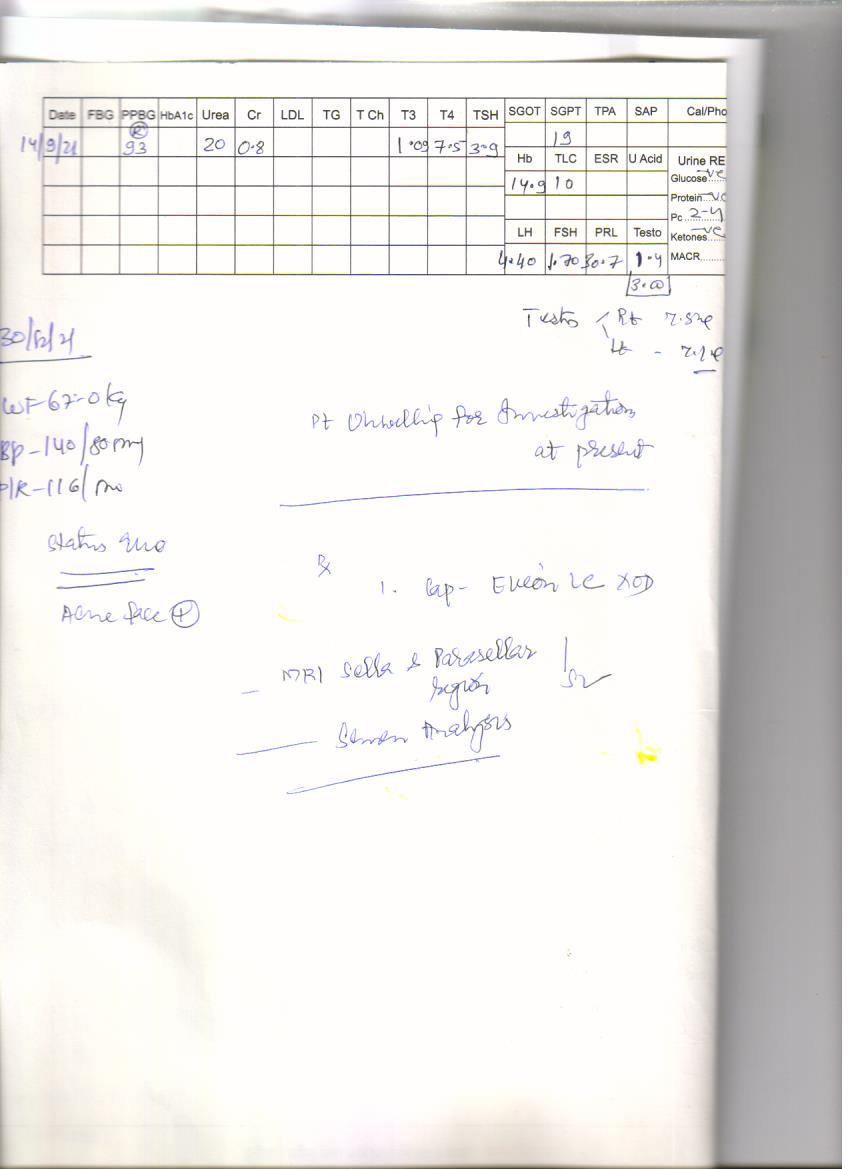 Date FBG PPBG HbA1c Urea Cr LDL TG T Ch T3 T4 TSH SGOT SGPT TPA SAP Cal/Pho
14/9/21 (R) 93 20 0.8 1.09 7.5 3.9 19
Hb TLC ESR U Acid Urine RE
14.9 10
Glucose -ve
Protein -ve
Pc 2-4
LH FSH PRL Testo
Ketones -ve
4.40 1.70 30.7 1.4
MACR
3.00
Testis Rt
Lt -
Wt-67.0 kg
BP-140/80
P/R-116/
Pt Unwillig for Investigation
at present
Status Quo
Acne face +
Rx
1. Cap- Evion LC XOD
- MRI Sella & Parasellar
Region
- Semen Analysis